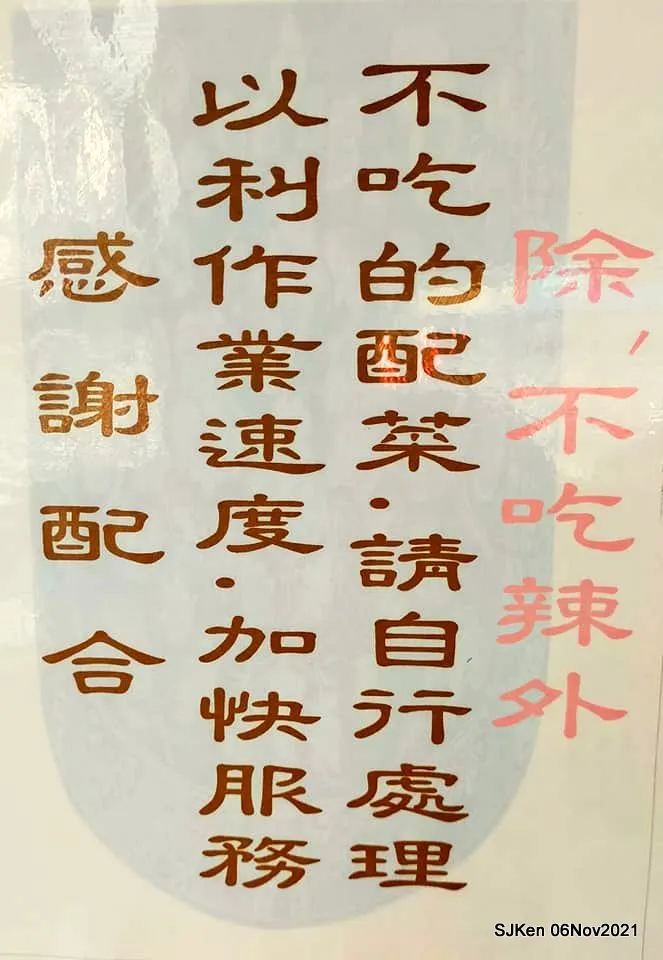 除，不吃辣外
不吃的配菜．請自行處理
以利作業速度．加快服務
感謝配合
SJKen 06Nov2021